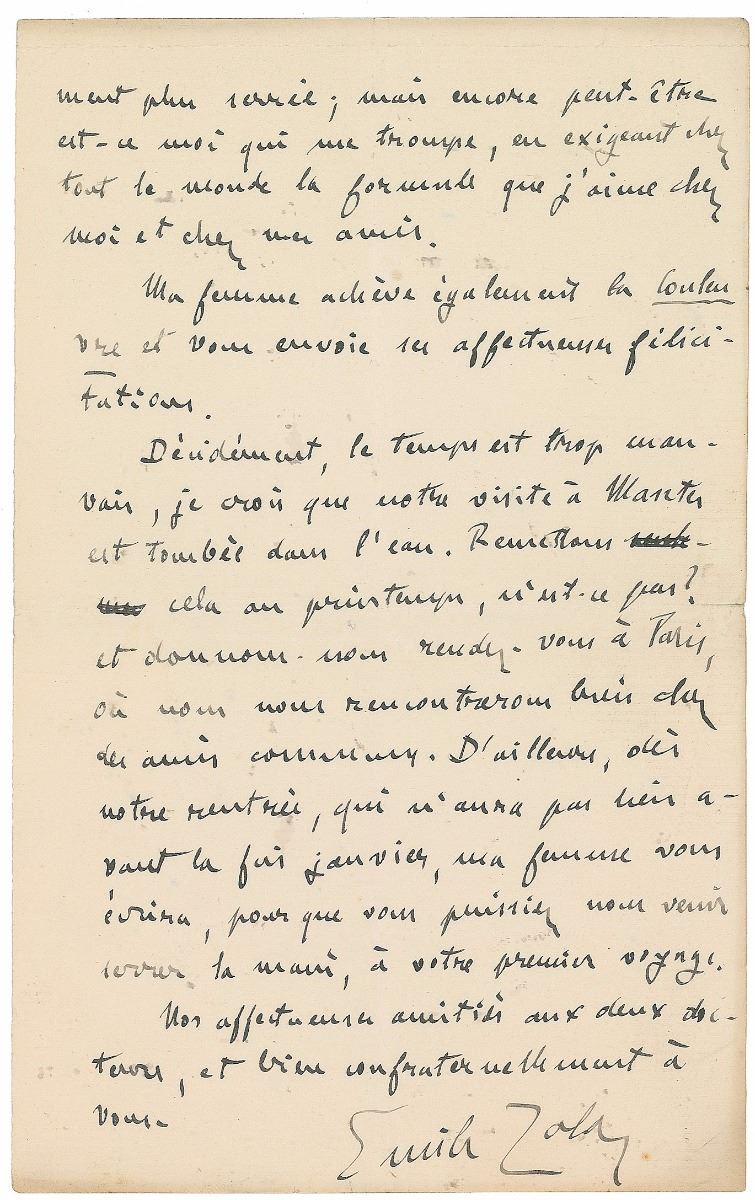 ment plus serrée ; mais encore peut-être
est-ce moi qui me trompe, en exigeant chez
tout le monde la formule que j'aime chez
moi et chez mes amis.
Ma femme achève également la Couleu
vre et vous envoie ses affectueuses félici-
tations.
Décidément, le temps est trop mau-
vais, je crois que notre visite à Mantes
est tombée dans l'eau. Remettons
cela au printemps, n'est-ce pas?
et donnons-nous rendez-vous à Paris,
où nous nous rencontrerons bien chez
des amis communs. D'ailleurs, dès
notre rentrée, qui n'aura pas lieu a-
vant la fin janvier, ma femme vous
écrira, pour que vous puissiez nous venir
serrer la main, à votre premier voyage.
Nos affectueuses amitiés aux deux doc-
teurs, et bien confraternellement à
vous.
Emile Zola